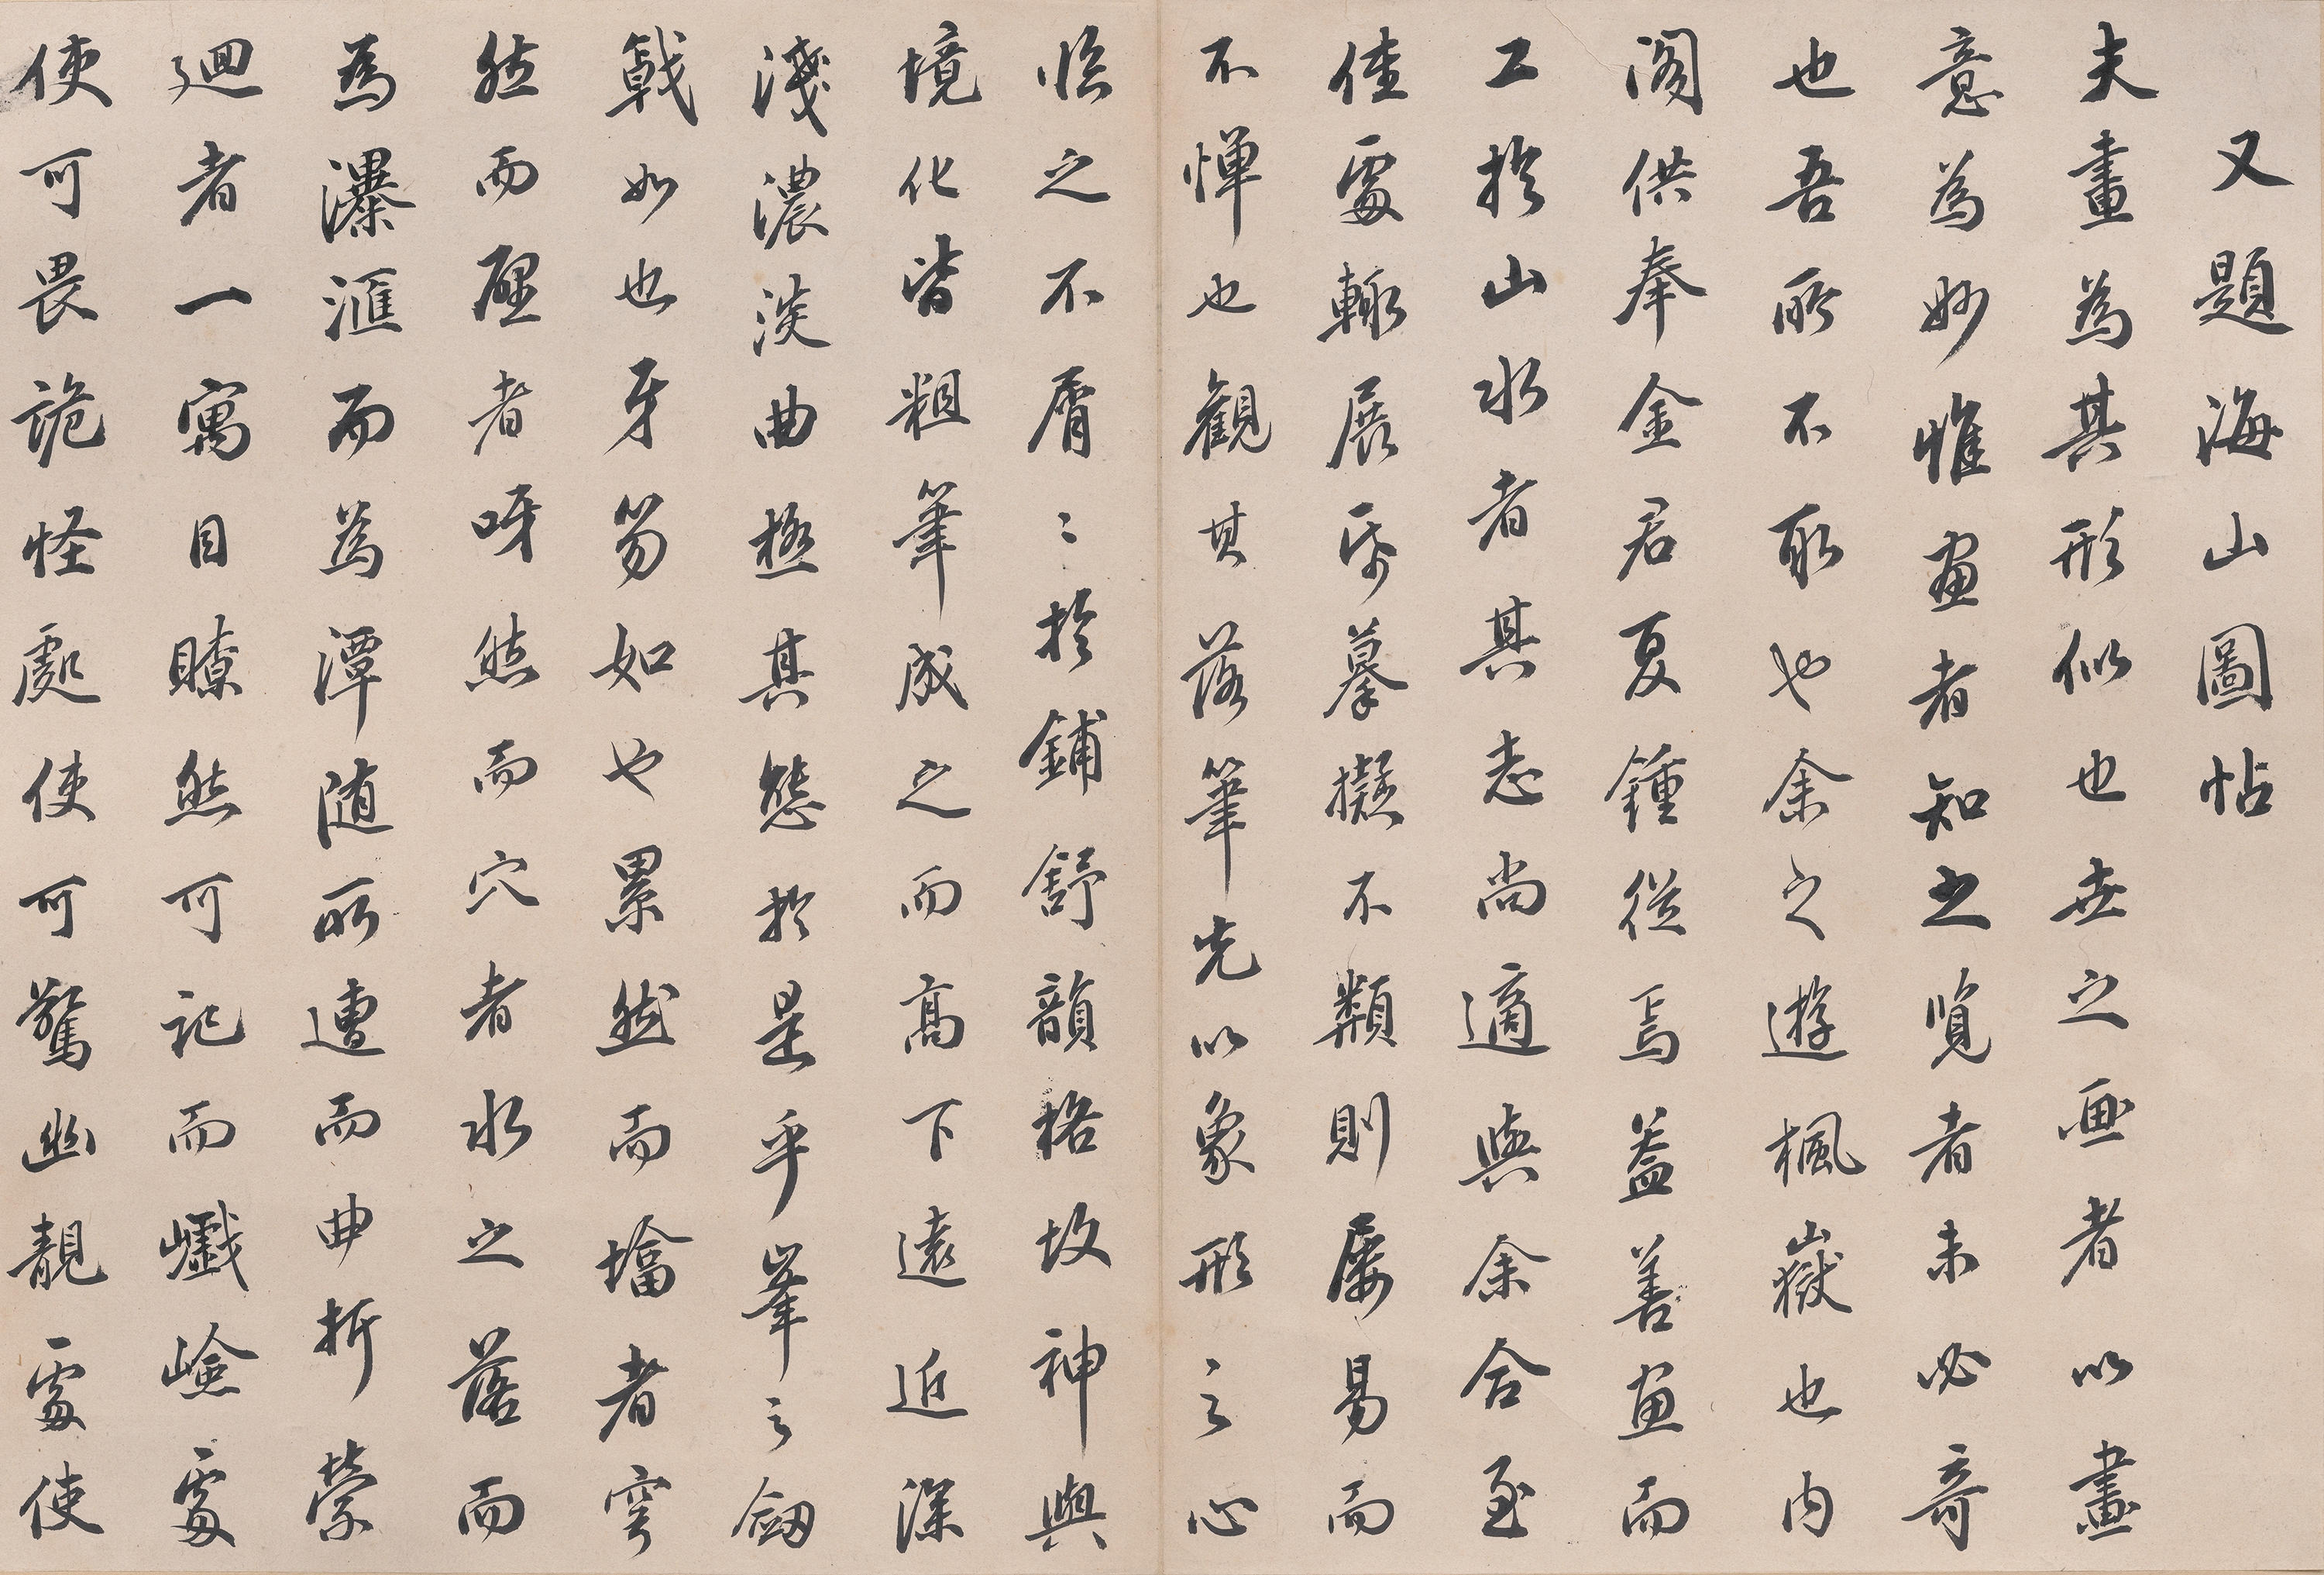 又題海山圖帖
夫畫為其形似也世之画者以畫
意為妙惟畫者知之覽者未必奇
也吾所不取也余之遊楓嶽也内
閣供奉金君夏鍾從焉蓋善畫而
工於山水者其志尚適與余合至
佳處輒展昏摹擬不類則屢易而
不憚也觀其落筆先以象形之心
臨之不屑〻於鋪舒韻格故神與
境化皆粗筆成之而高下遠近深
淺濃淡曲極其態於是乎峯之劒
戟如也牙笏如也累然而墖者穹
然而壓者呀然而穴者水之落而
為瀑滙而為潭随所遭而曲折縈
廻者一寓目瞭然可記而巇嶮處
使可畏詭怪處使可驚幽靚處使